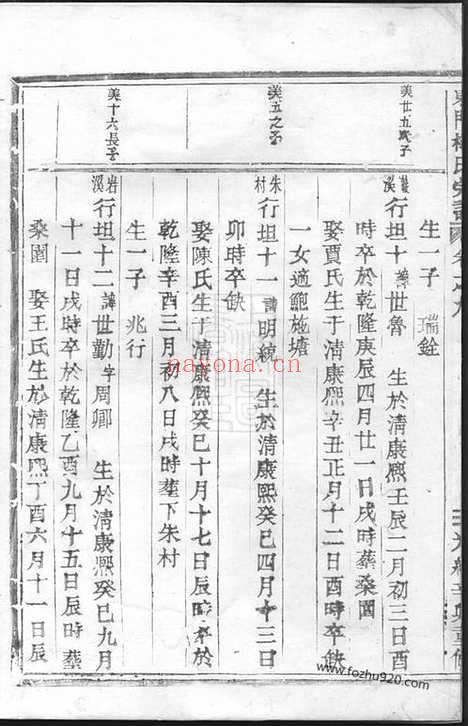 生一子 瑞銓
美廿五
行坦十 諱世魯 生於清康熙壬辰二月初三日酉
時卒於乾隆庚辰四月廿一日戌時葬桑園
娶賈氏生于清康熙辛丑正月十二日酉時卒缺
一女適鮑施塘
美五之子
朱村 行坦十一 諱明統 生於清康熙癸巳四月十三日
卯時卒缺
娶陳氏生于清康熙癸巳十月十七日辰時卒於
乾隆辛酉三月初八日戌時葬下朱村
生一子 兆行
美十六長子
岩溪 行坦十二 諱世勤字周卿 生於清康熙癸巳九月
十一日戌時卒於乾隆乙酉九月十五日辰時葬
桑園 娶王氏生於清康熙丁酉六月十一日辰
nayona.cn
www.fozhu920.com